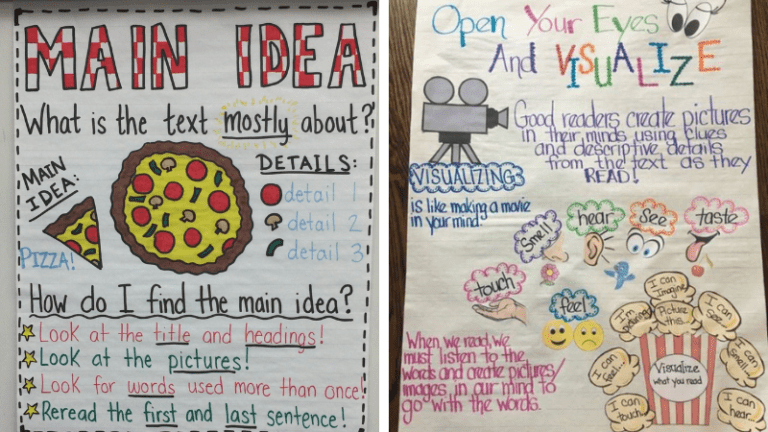 MAIN IDEA
What is the text mostly about?
MAIN
IDEA:
PIZZA!
DETAILS:
detail 1
detail 2
detail 3
How do I find the main idea?
Look at the title and headings!
Look at the pictures!
Look for words used more than once!
Reread the first and last sentence!
Open Your Eyes
And VISUALIZE
Good readers create pictures
in their minds using clues
and descriptive details
from the text as they
READ!
VISUALIZING
is like making a movie
in your mind.
Smell
hear
See
taste
touch
feel
When we read, we
must listen to the
words and create pictures/
images in our mind to
go with the words.
I can
Imagine
Picture
this...
I can
See
I can
Smell
I can
feel...
I can
touch
I can
hear...
Visualize
what you read